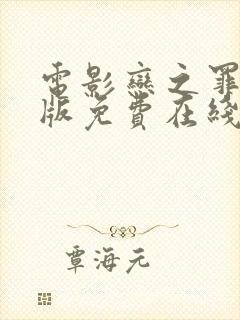 電影戀之罪
版免費在綫
覃海元